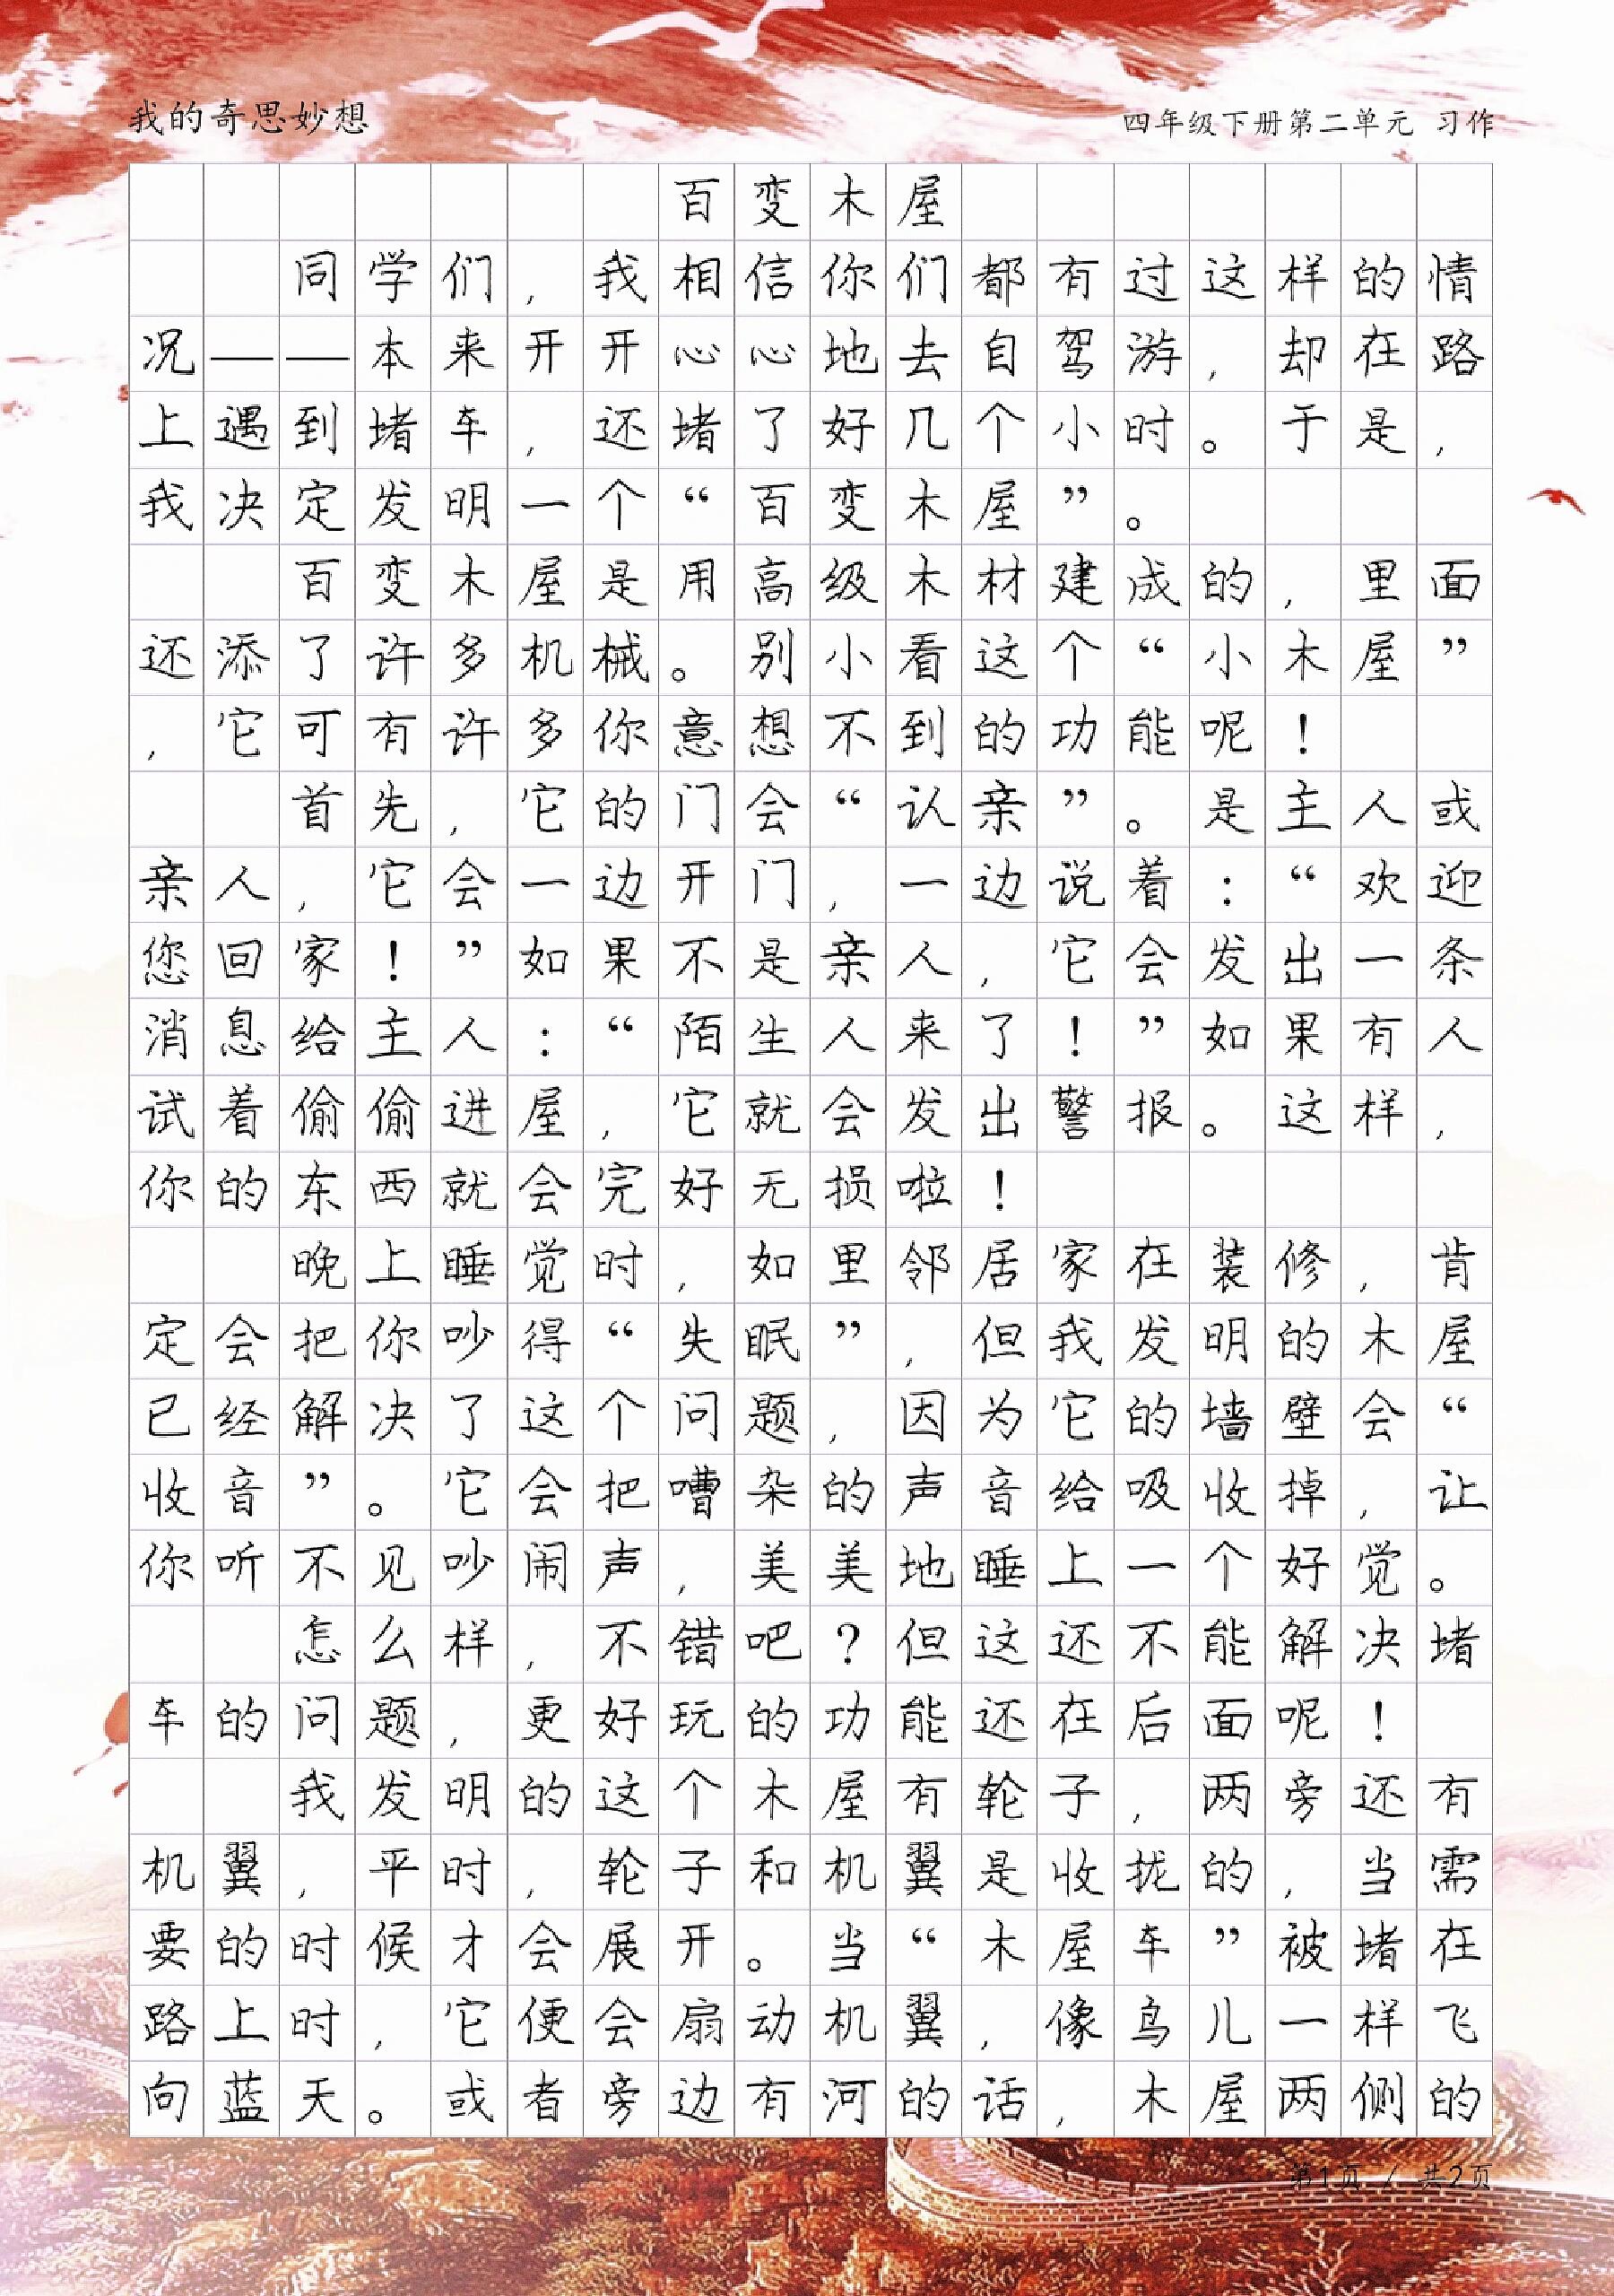 我的奇思妙想
四年级下册第二单元 习作
百变木屋
同学们，我相信你们都有过这样的情
况——本来开开心心地去自驾游，却在路
上遇到堵车，还堵了好几个小时。于是，
我决定发明一个“百变木屋”。
百变木屋是用高级木材建成的，里面
还添了许多机械。别小看这个“小木屋”
，它可有许多你意想不到的功能呢！
首先，它的门会“认亲”。是主人或
亲人，它会一边开门，一边说着：“欢迎
您回家！”如果不是亲人，它会发出一条
消息给主人：“陌生人来了！”如果有人
试着偷偷进屋，它就会发出警报。这样，
你的东西就会完好无损啦！
晚上睡觉时，如里邻居家在装修，肯
定会把你吵得“失眠”，但我发明的木屋
已经解决了这个问题，因为它的墙壁会“
收音”。它会把嘈杂的声音给吸收掉，让
你听不见吵闹声，美美地睡上一个好觉。
怎么样，不错吧？但这还不能解决堵
车的问题，更好玩的功能还在后面呢！
我发明的这个木屋有轮子，两旁还有
机翼，平时，轮子和机翼是收拢的，当需
要的时候才会展开。当“木屋车”被堵在
路上时，它便会扇动机翼，像鸟儿一样飞
向蓝天。或者旁边有河的话，木屋两侧的
第1页 / 共2页